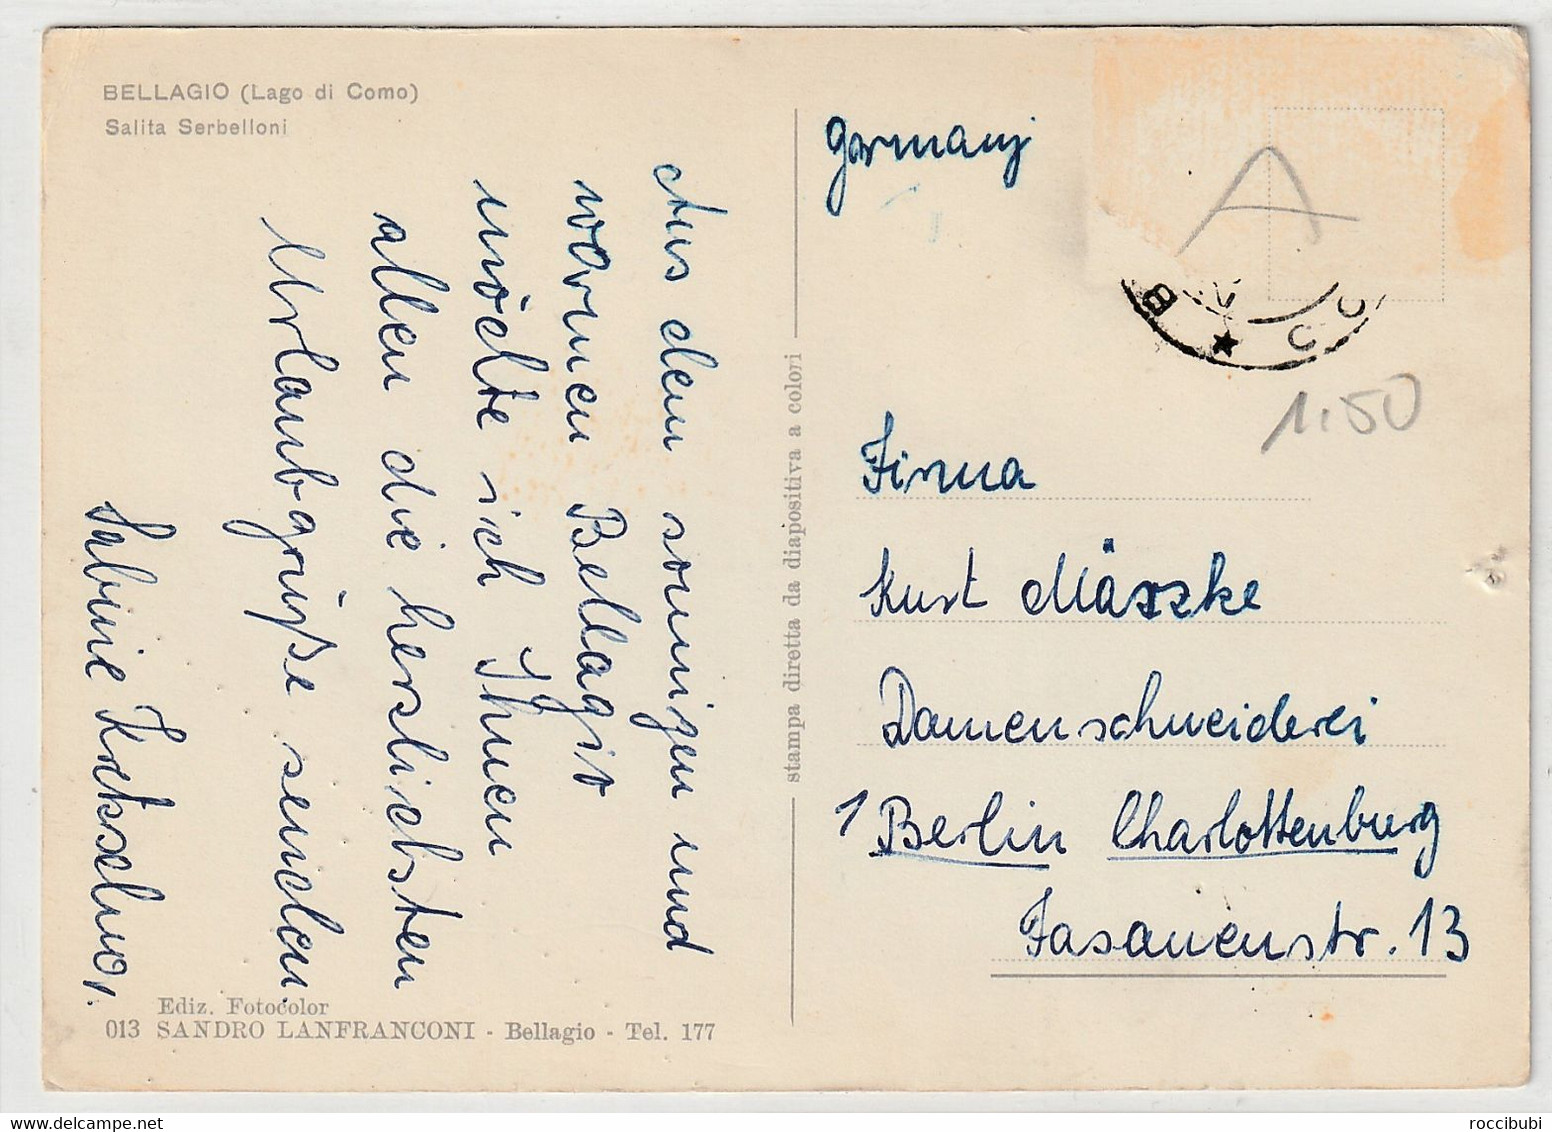 BELLAGIO (Lago di Como)
Salita Serbelloni
Aus dem sonnigen und
warmen Bellagio
möchte ich Ihnen
allen die herzlichsten
Urlaubsgrüße senden.
Sabine
stampa diretta da diapositiva a colori
Germany
A
B
1.50
Firma
Kurt Mäszke
Damenschneiderei
1 Berlin Charlottenburg
Fasanenstr. 13
Ediz. Fotocolor
013 SANDRO LANFRANCONI - Bellagio - Tel. 177
roccibubi